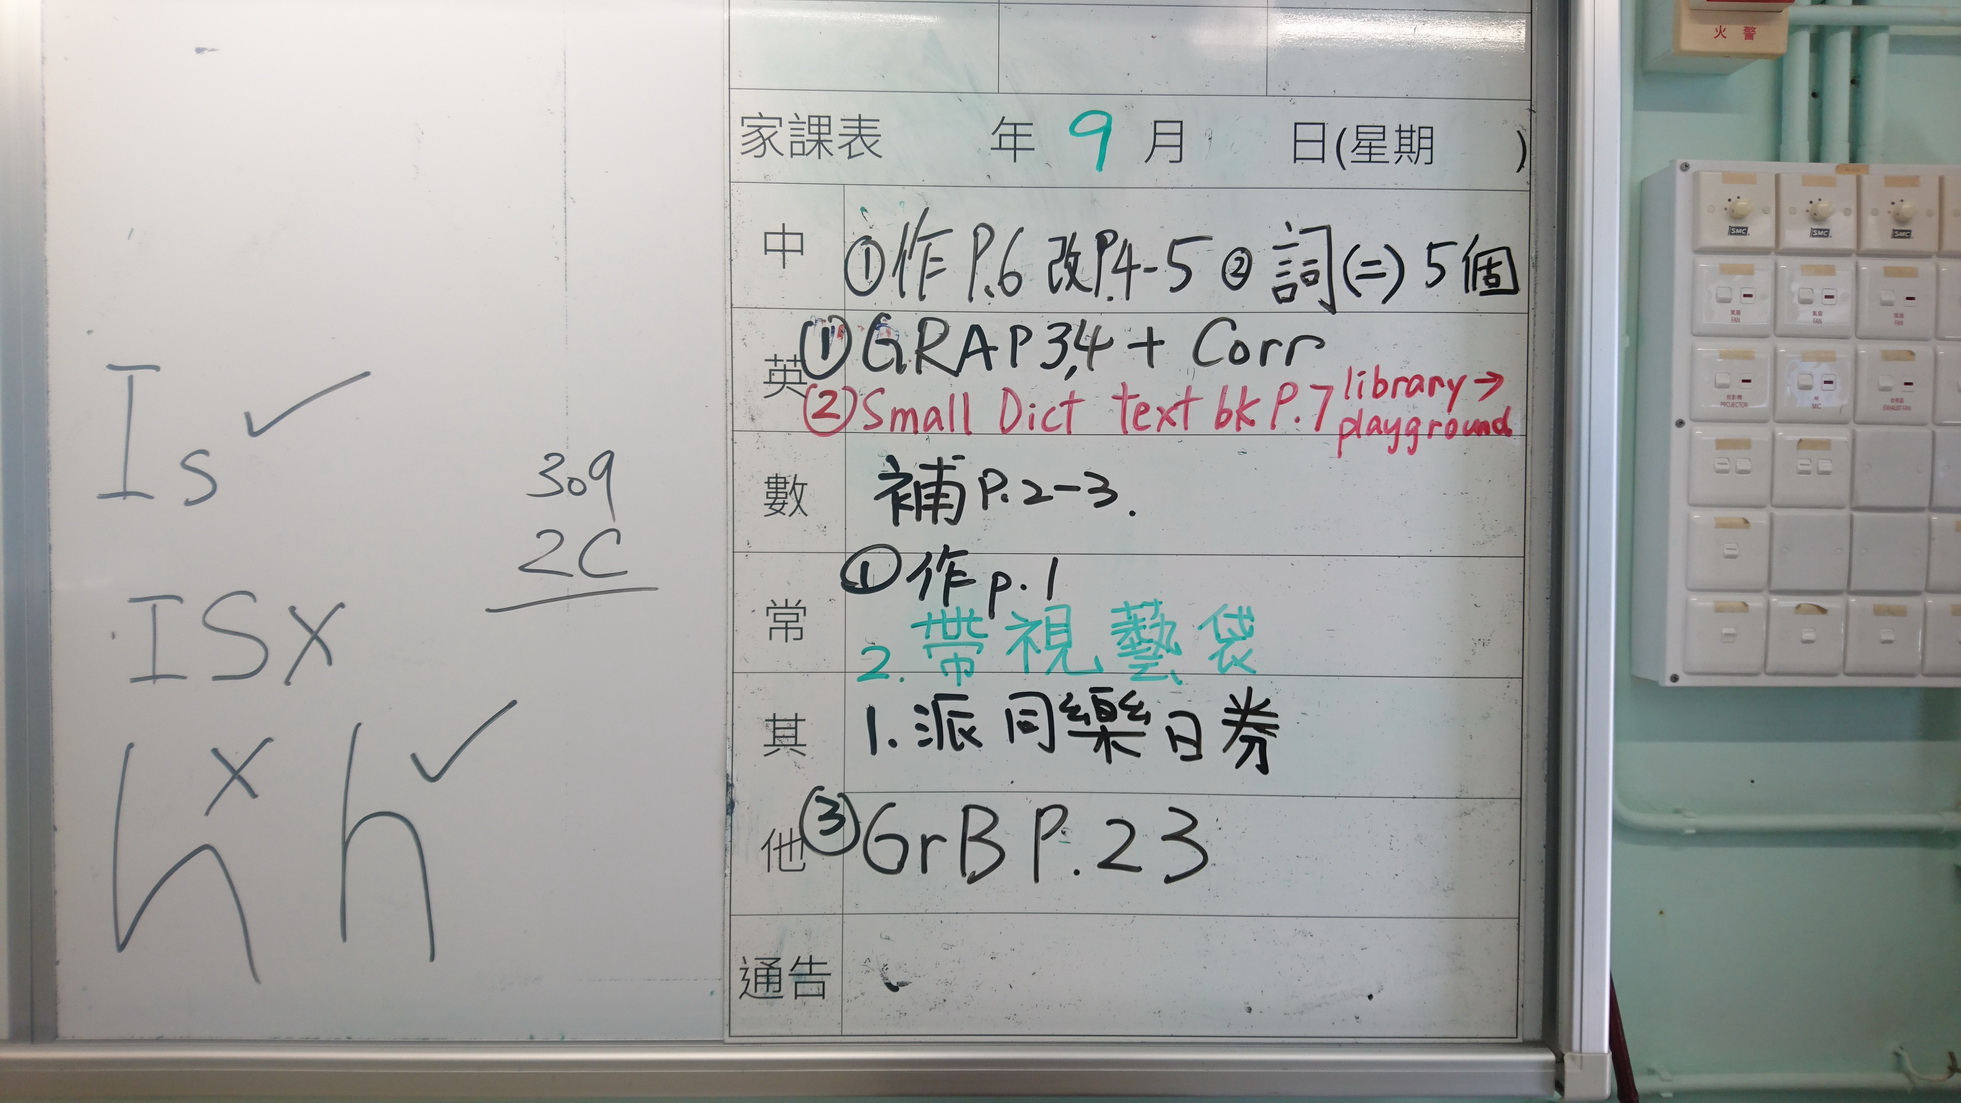 火警
家課表 年 9 月 日(星期 )
中 ①作 P.6 改P.4-5 ② 詞(二) 5個
英 ①GRA P3,4 + Corr
②Small Dict text bk P.7 library→
playground
數 補 P.2-3.
常 ①作 p.1
2. 帶視藝袋
其 1. 派同樂日券
他 ③GrB P.23
通告
Is ✓
ISX
h X h ✓
309
2C
SMC SMC SMC
FAN FAN FAN
PROJECTOR MIC EXHAUST FAN